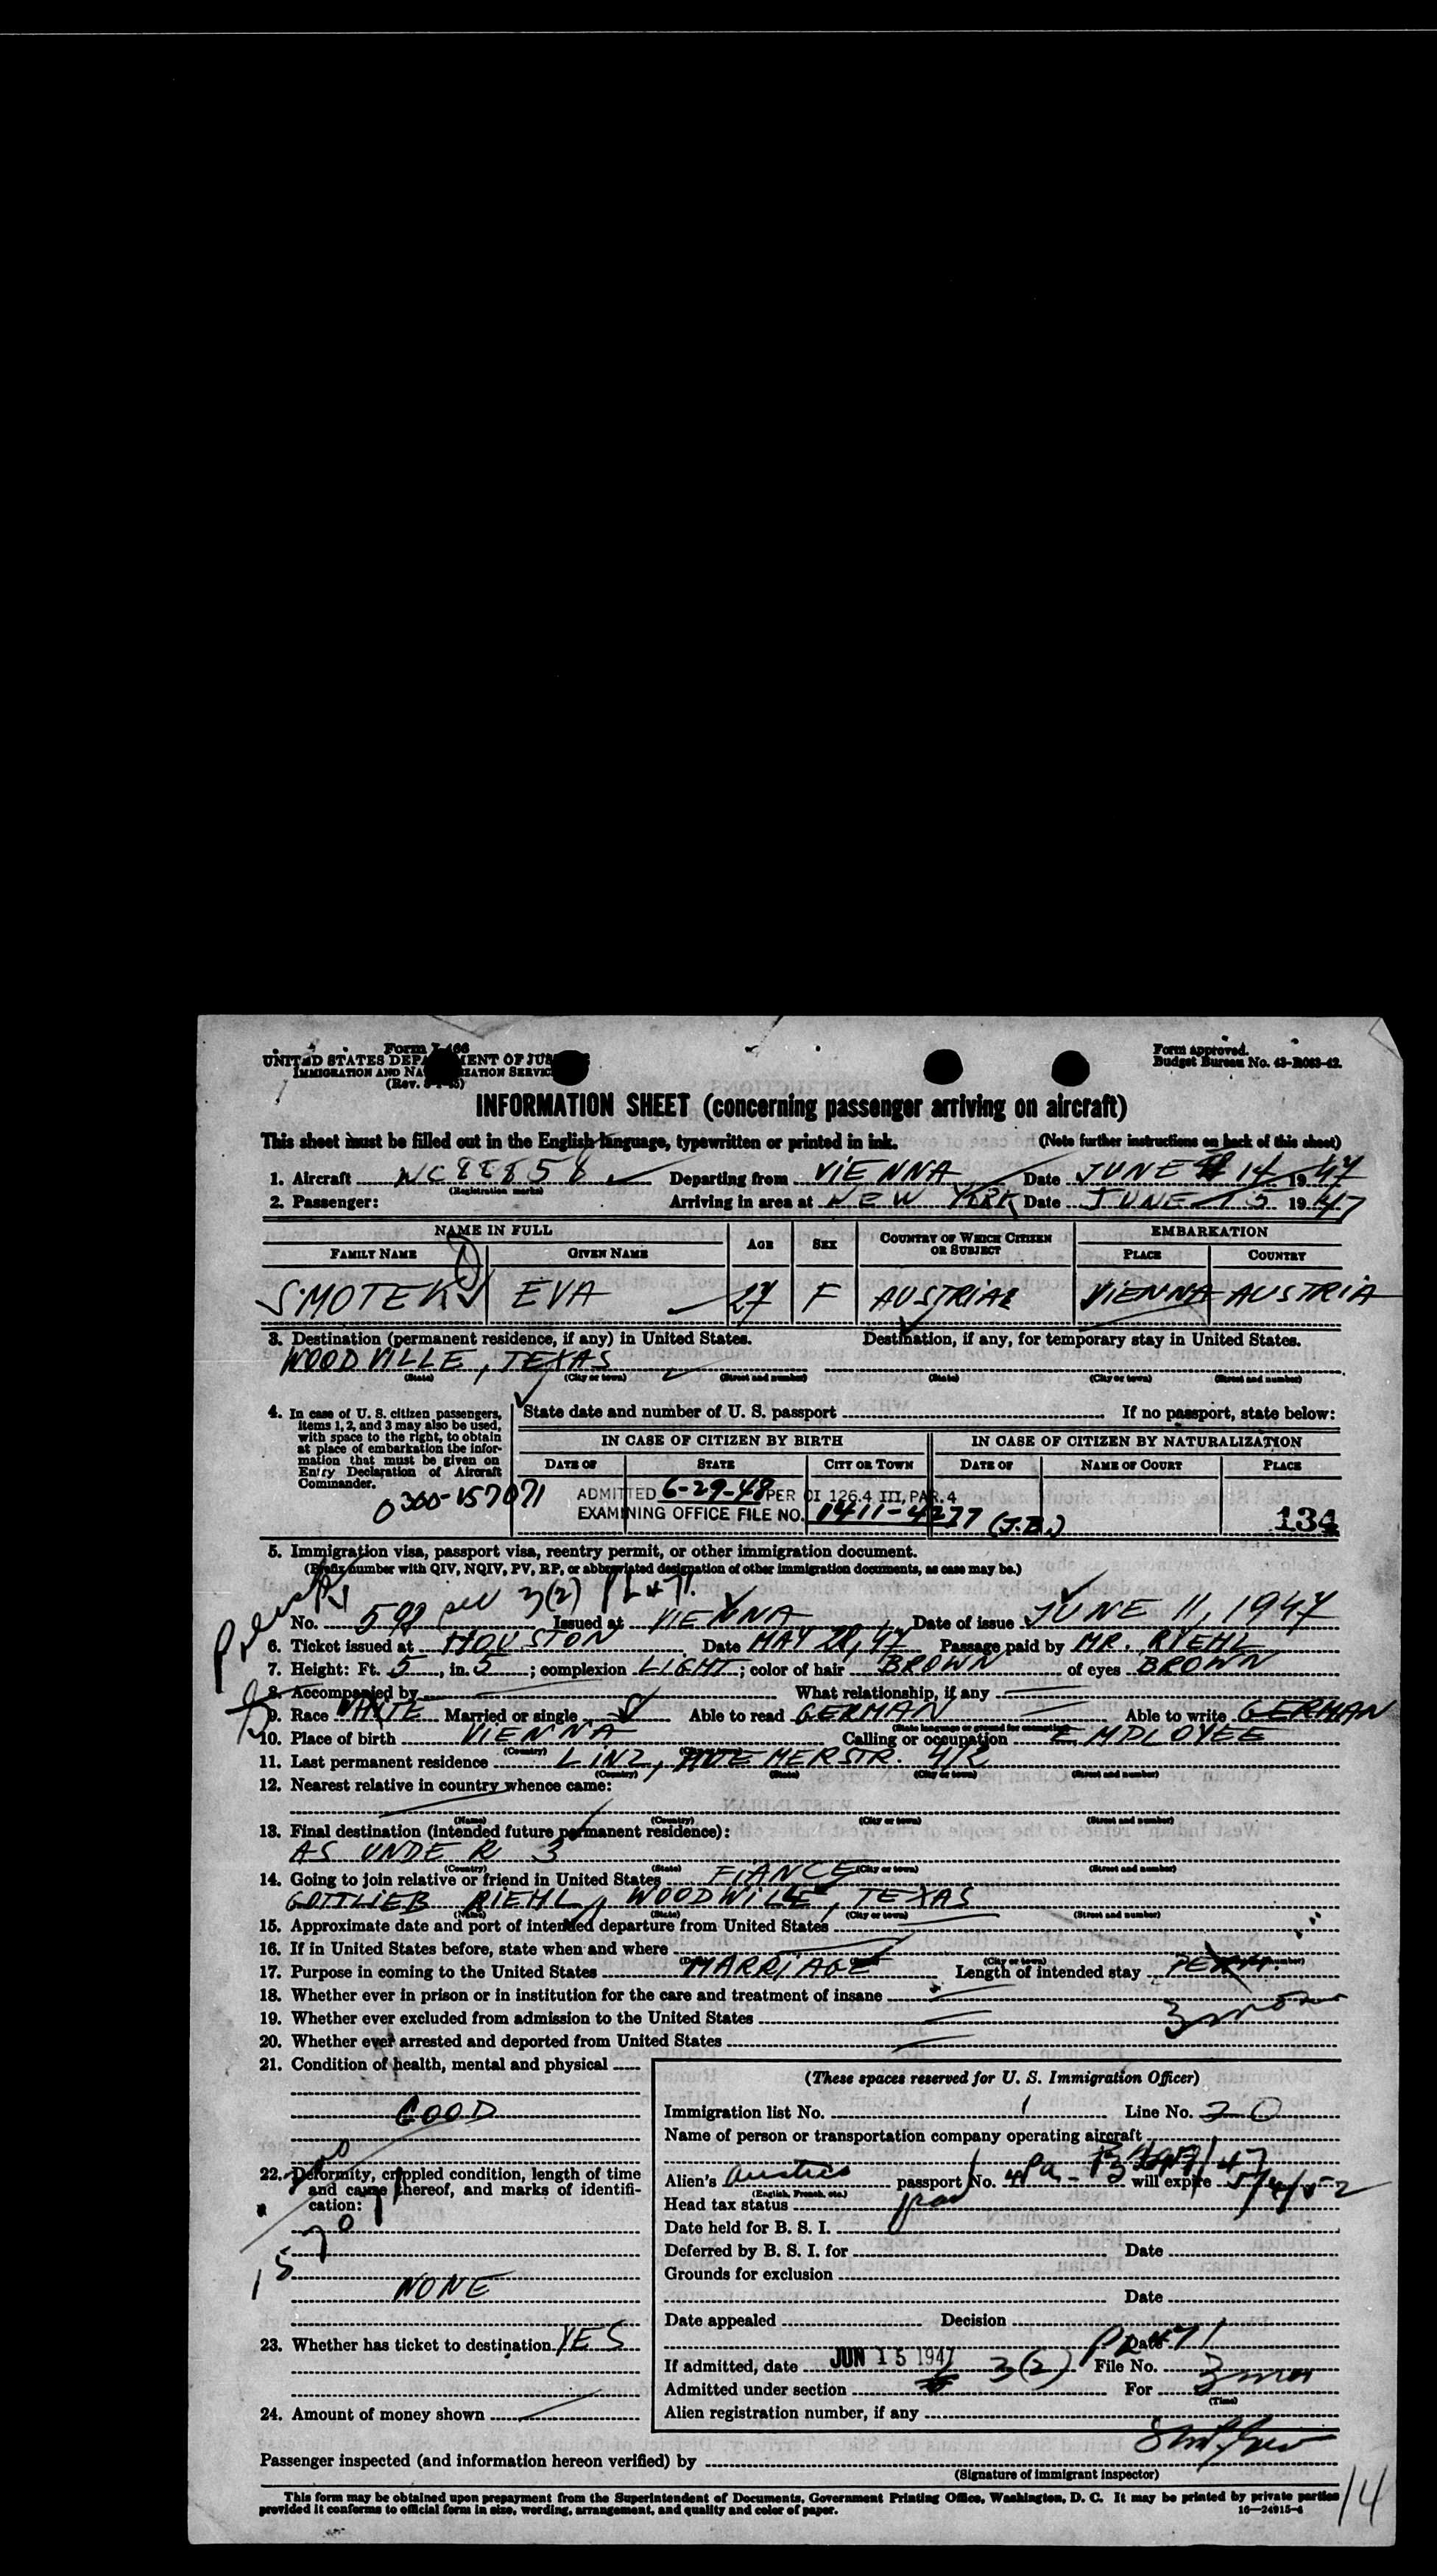 Form I-466
UNITED STATES DEPARTMENT OF JUSTICE
IMMIGRATION AND NATURALIZATION SERVICE
(Rev.
Form approved.
Budget Bureau No. 43-R083-42.
INFORMATION SHEET (concerning passenger arriving on aircraft)
This sheet must be filled out in the English language, typewritten or printed in ink. (Note further instructions on back of this sheet)
1. Aircraft NC88858 Departing from VIENNA Date JUNE 14 1947
(Registration marks)
2. Passenger: Arriving in area at NEW YORK Date JUNE 15 1947
NAME IN FULL AGE SEX COUNTRY OF WHICH CITIZEN OR SUBJECT EMBARKATION
FAMILY NAME GIVEN NAME PLACE COUNTRY
SMOTEK EVA 27 F AUSTRIAE VIENNA AUSTRIA
3. Destination (permanent residence, if any) in United States. Destination, if any, for temporary stay in United States.
WOODVILLE, TEXAS
(State) (City or town) (Street and number) (State) (City or town) (Street and number)
4. In case of U. S. citizen passengers, items 1, 2, and 3 may also be used, with space to the right, to obtain at place of embarkation the information that must be given on Entry Declaration of Aircraft Commander.
State date and number of U. S. passport If no passport, state below:
IN CASE OF CITIZEN BY BIRTH IN CASE OF CITIZEN BY NATURALIZATION
DATE OF STATE CITY OR TOWN DATE OF NAME OF COURT PLACE
0300-157071
ADMITTED 6-29-48 PER OI 126.4 III, PAR. 4
EXAMINING OFFICE FILE NO. 1411-4277 (J.B.)
134
5. Immigration visa, passport visa, reentry permit, or other immigration document.
(Prefix number with QIV, NQIV, PV, RP, or abbreviated designation of other immigration documents, as case may be.)
No. 598 sec 3(2) PL 471. Issued at VIENNA Date of issue JUNE 11, 1947
6. Ticket issued at HOUSTON Date MAY 28, 47 Passage paid by MR. RIEHL
7. Height: Ft. 5, in. 5; complexion LIGHT; color of hair BROWN of eyes BROWN
8. Accompanied by What relationship, if any
9. Race WHITE Married or single S Able to read GERMAN Able to write GERMAN
(State language or ground for exemption)
10. Place of birth VIENNA Calling or occupation EMPLOYEE
11. Last permanent residence LINZ, 4/2
(Country) (State) (City or town) (Street and number)
12. Nearest relative in country whence came:
(Name) (Country) (City or town) (Street and number)
13. Final destination (intended future permanent residence):
AS UNDER 3
(Country) (State) (City or town) (Street and number)
14. Going to join relative or friend in United States FIANCE
GOTTLIEB RIEHL, WOODWILLE, TEXAS
(Name) (State) (City or town) (Street and number)
15. Approximate date and port of intended departure from United States
16. If in United States before, state when and where
17. Purpose in coming to the United States MARRIAGE Length of intended stay PERM.
3 mos
18. Whether ever in prison or in institution for the care and treatment of insane
19. Whether ever excluded from admission to the United States
20. Whether ever arrested and deported from United States
21. Condition of health, mental and physical
GOOD
22. Deformity, crippled condition, length of time and cause thereof, and marks of identification:
NONE
23. Whether has ticket to destination YES
24. Amount of money shown
(These spaces reserved for U. S. Immigration Officer)
Immigration list No. 1 Line No. 20
Name of person or transportation company operating aircraft
Alien's Austria passport No. will expire 5/4/52
(English, French, etc.)
Head tax status
Date held for B. S. I.
Deferred by B. S. I. for Date
Grounds for exclusion
Date
Date appealed Decision
Date
PL 471
If admitted, date JUN 15 1947 File No.
Admitted under section 3(2) For 3 mos
(Time)
Alien registration number, if any
Passenger inspected (and information hereon verified) by
(Signature of immigrant inspector)
This form may be obtained upon prepayment from the Superintendent of Documents, Government Printing Office, Washington, D. C. It may be printed by private parties
provided it conforms to official form in size, wording, arrangement, and quality and color of paper. 16—24915-4
14